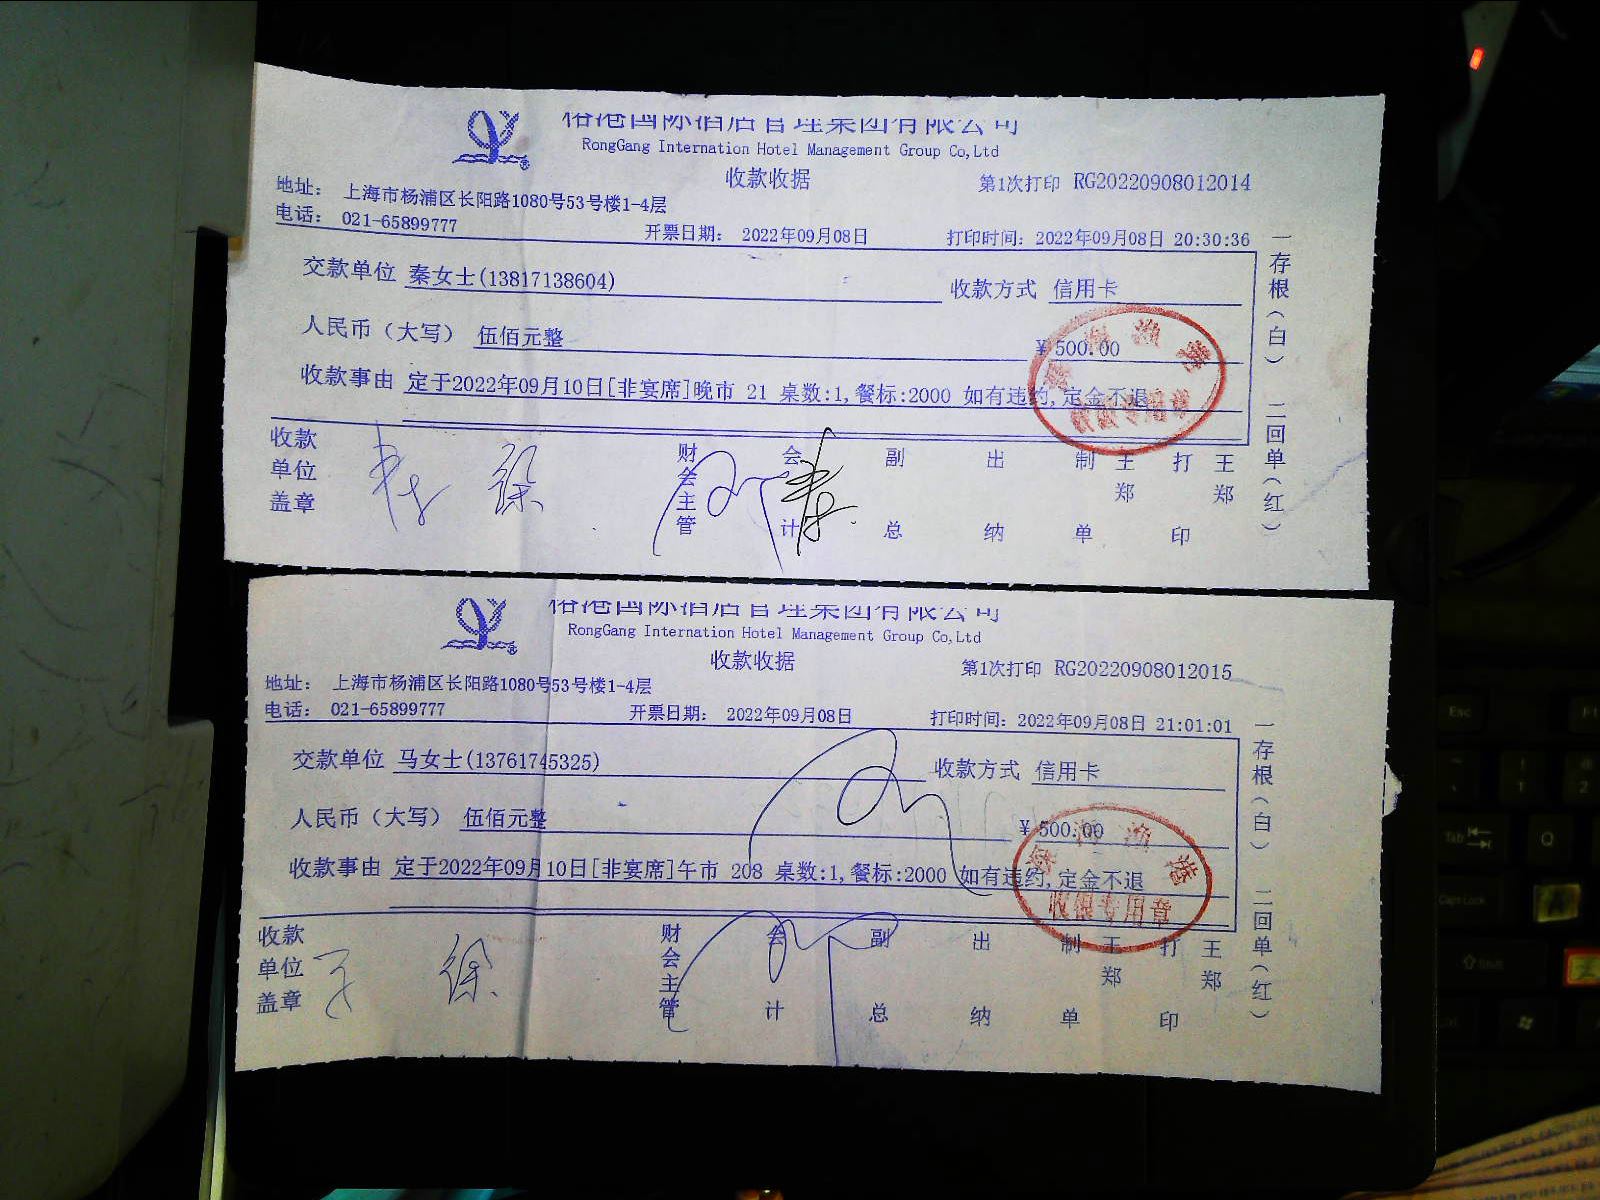 国际酒店管理集团有限公司
RongGang International Hotel Management Group Co,Ltd
收款收据
第1次打印 RG20220908012014
地址： 上海市杨浦区长阳路1080号53号楼1-4层
电话： 021-65899777
开票日期： 2022年09月08日
打印时间：2022年09月08日 20:30:36
交款单位 秦女士(13817138604)
收款方式 信用卡
人民币（大写） 伍佰元整
￥500.00
收款事由 定于2022年09月10日[非宴席]晚市 21 桌数:1,餐标:2000 如有违约,定金不退
收款单位盖章
徐
财会主管
会计
副总
出纳
制单
王郑
打印
王郑
一存根（白） 二回单（红）
国际酒店管理集团有限公司
RongGang International Hotel Management Group Co,Ltd
收款收据
第1次打印 RG20220908012015
地址： 上海市杨浦区长阳路1080号53号楼1-4层
电话： 021-65899777
开票日期： 2022年09月08日
打印时间：2022年09月08日 21:01:01
交款单位 马女士(13761745325)
收款方式 信用卡
人民币（大写） 伍佰元整
￥500.00
收款事由 定于2022年09月10日[非宴席]午市 208 桌数:1,餐标:2000 如有违约,定金不退
专用章
收款单位盖章
徐
财会主管
会计
副总
出纳
制单
王郑
打印
王郑
一存根（白） 二回单（红）
Esc
Tab
Q
Caps Lock
Shift